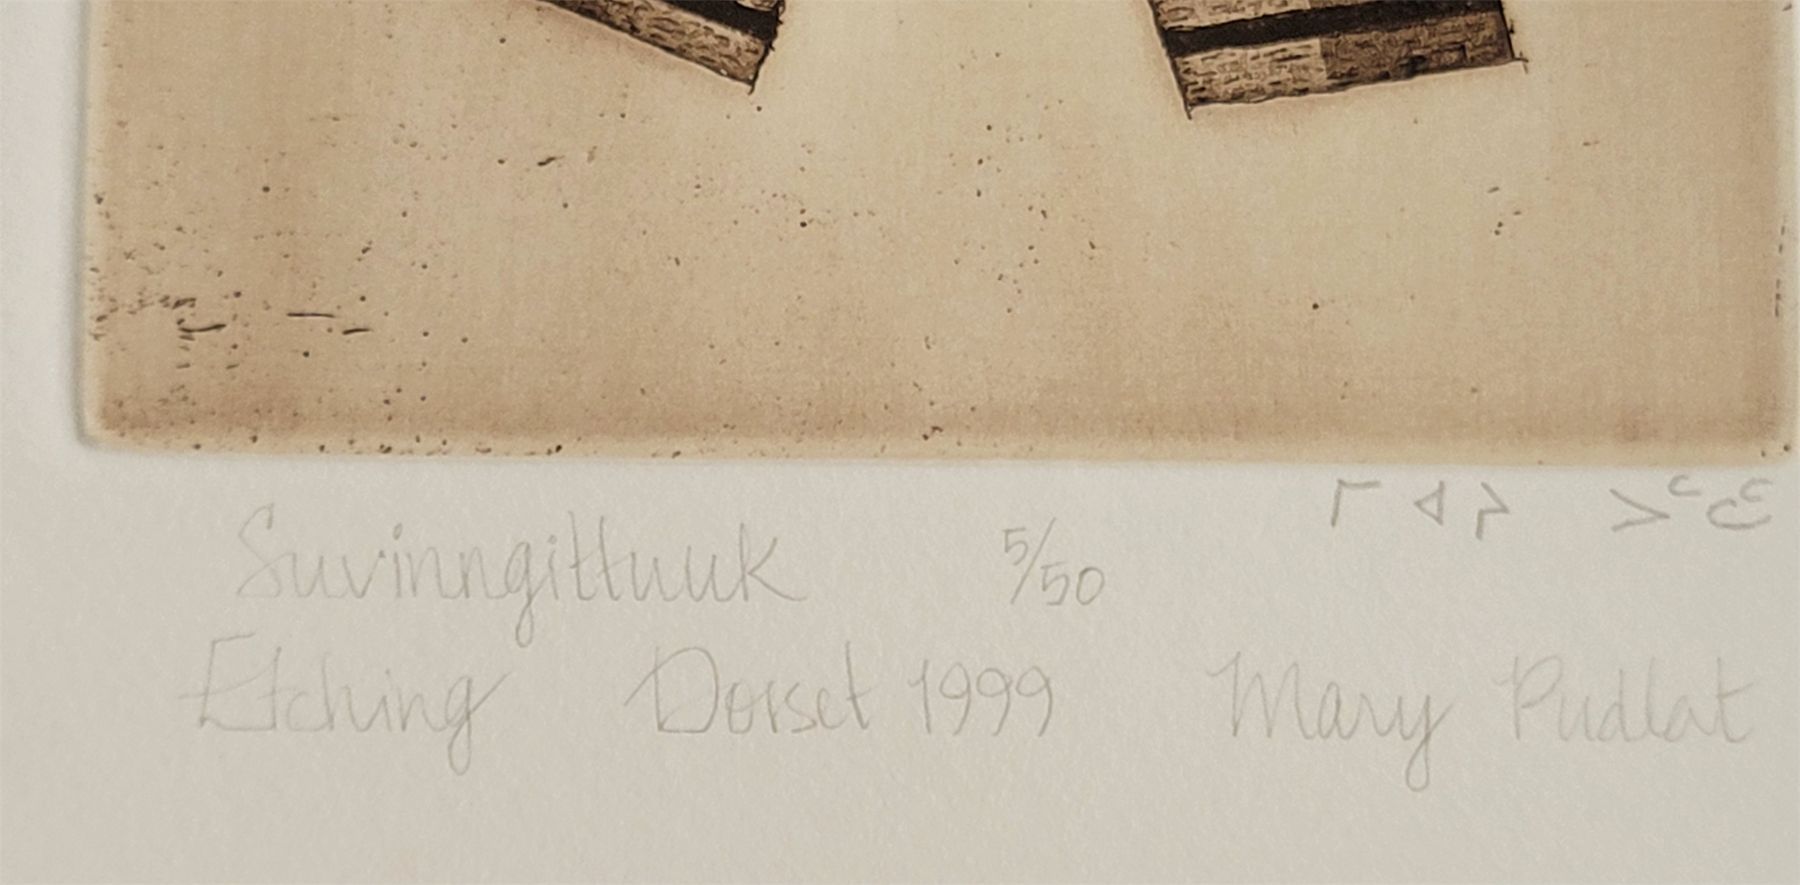 ᒥᐊᔨ ᐳᑦᓚᑦ
Suvinngittuuk 5/50
Etching Dorset 1999 Mary Pudlat